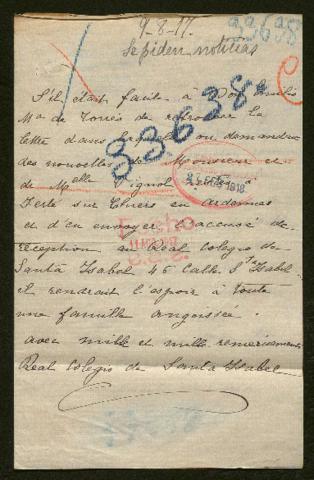 9-8-17. 33638
se piden noticias
S'il était facile à Don Emilio
Mª de Torrés de retrouver la
lettre dans laquelle on demandai
des nouvelles de Monsieur et
33638
de Melle Vignol
ferté sur Chiers en ardennes
et d'en envoyer l'accusé de
réception au Real Colegio de
Santa Isabel 45 Calle Sta Isabel
il rendrait l'espoir à toute
une famille angoissée.
avec mille et mille remerciements
Real Colegio de Santa Isabel